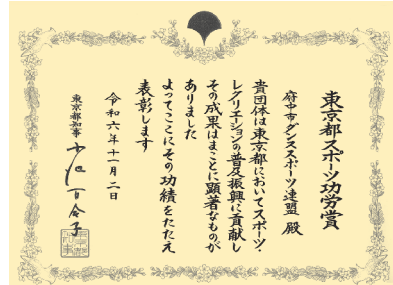 東京都スポーツ功労賞
府中市ダンススポーツ連盟 殿
貴団体は東京都においてスポーツ・
レクリエションの普及振興に貢献し
その成果はまことに顕著なものが
ありました
よってここにその功績をたたえ
表彰します
令和六年十一月二日
東京都知事 小池百合子